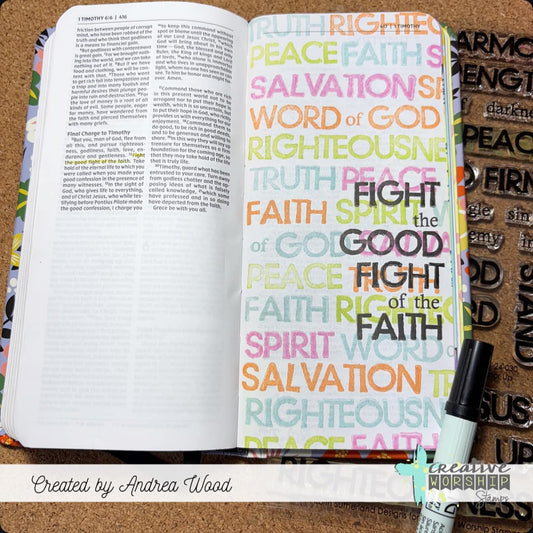 1 TIMOTHY 6:6 | 416
friction between people of corrupt
mind, who have been robbed of the
truth and who think that godliness
is a means to financial gain.
6But godliness with contentment
is great gain. 7For we brought noth-
ing into the world, and we can take
nothing out of it. 8But if we have
food and clothing, we will be con-
tent with that. 9Those who want
to get rich fall into temptation and
a trap and into many foolish and
harmful desires that plunge peo-
ple into ruin and destruction. 10For
the love of money is a root of all
kinds of evil. Some people, eager
for money, have wandered from
the faith and pierced themselves
with many griefs.
Final Charge to Timothy
11But you, man of God, flee from
all this, and pursue righteous-
ness, godliness, faith, love, en-
durance and gentleness. 12Fight
the good fight of the faith. Take
hold of the eternal life to which you
were called when you made your
good confession in the presence of
many witnesses. 13In the sight of
God, who gives life to everything,
and of Christ Jesus, who while tes-
tifying before Pontius Pilate made
the good confession, I charge you
14to keep this command without
spot or blame until the appearing
of our Lord Jesus Christ, 15which
God will bring about in his own
time—God, the blessed and only
Ruler, the King of kings and Lord
of lords, 16who alone is immortal
and who lives in unapproachable
light, whom no one has seen or can
see. To him be honor and might for-
ever. Amen.
17Command those who are rich
in this present world not to be
arrogant nor to put their hope in
wealth, which is so uncertain, but
to put their hope in God, who richly
provides us with everything for our
enjoyment. 18Command them to
do good, to be rich in good deeds,
and to be generous and willing to
share. 19In this way they will lay up
treasure for themselves as a firm
foundation for the coming age, so
that they may take hold of the life
that is truly life.
20Timothy, guard what has been
entrusted to your care. Turn away
from godless chatter and the op-
posing ideas of what is falsely
called knowledge, 21which some
have professed and in so doing
have departed from the faith.
Grace be with you all.
417 | 1 TIMOTHY
TRUTH RIGHTEO
PEACE FAITH S
SALVATION SE
WORD of GOD
RIGHTEOUSNE
TRUTH PEACE
FAITH SPIRIT
of GOD SALVA
PEACE TRUTH
FAITH RIGHTEO
SPIRIT WORD O
SALVATION T
RIGHTEOUSN
PEACE FAITH
FIGHT
the
GOOD
FIGHT
of the
FAITH
ARMO
RENGT
darkne
PEACE
FIRM
STAND
Created by Andrea Wood
creative
WORSHIP
Stamps